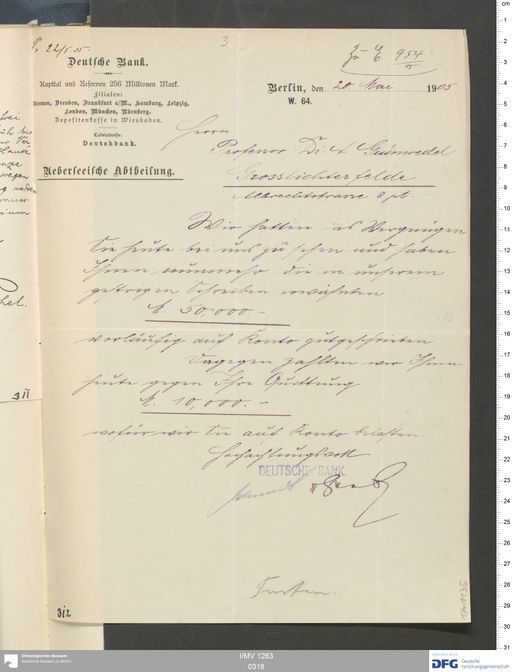 3
Pr. 22/5.05.
zu E 954/05
Deutsche Bank.
Kapital und Reserven 256 Millionen Mark.
Filialen:
Bremen, Dresden, Frankfurt a/M., Hamburg, Leipzig,
London, München, Nürnberg.
Depositenkasse in Wiesbaden.
Deutschbank.
Ueberseeische Abtheilung.
Berlin, den 20 Mai 1905
W. 64.
Herrn
Professor Dr. A. Grünwedel
Grosslichterfelde
Albrechtstrasse 8 pt.
Wir hatten das Vergnügen
Sie heute bei uns zu sehen und haben
Ihnen nunmehr die in unserem
gestrigen Schreiben erwähnten
M. 50,000.–
vorläufig auf Konto gutgeschrieben
Dagegen zahlten wir Ihnen
heute gegen Ihre Quittung
M. 10,000.–
wofür wir Sie auf Konto belasten.
Hochachtungsvoll
DEUTSCHE BANK
312
311
Ethnologisches Museum
Staatliche Museen zu Berlin
I/MV 1263
0318
DFG Deutsche
Forschungsgemeinschaft